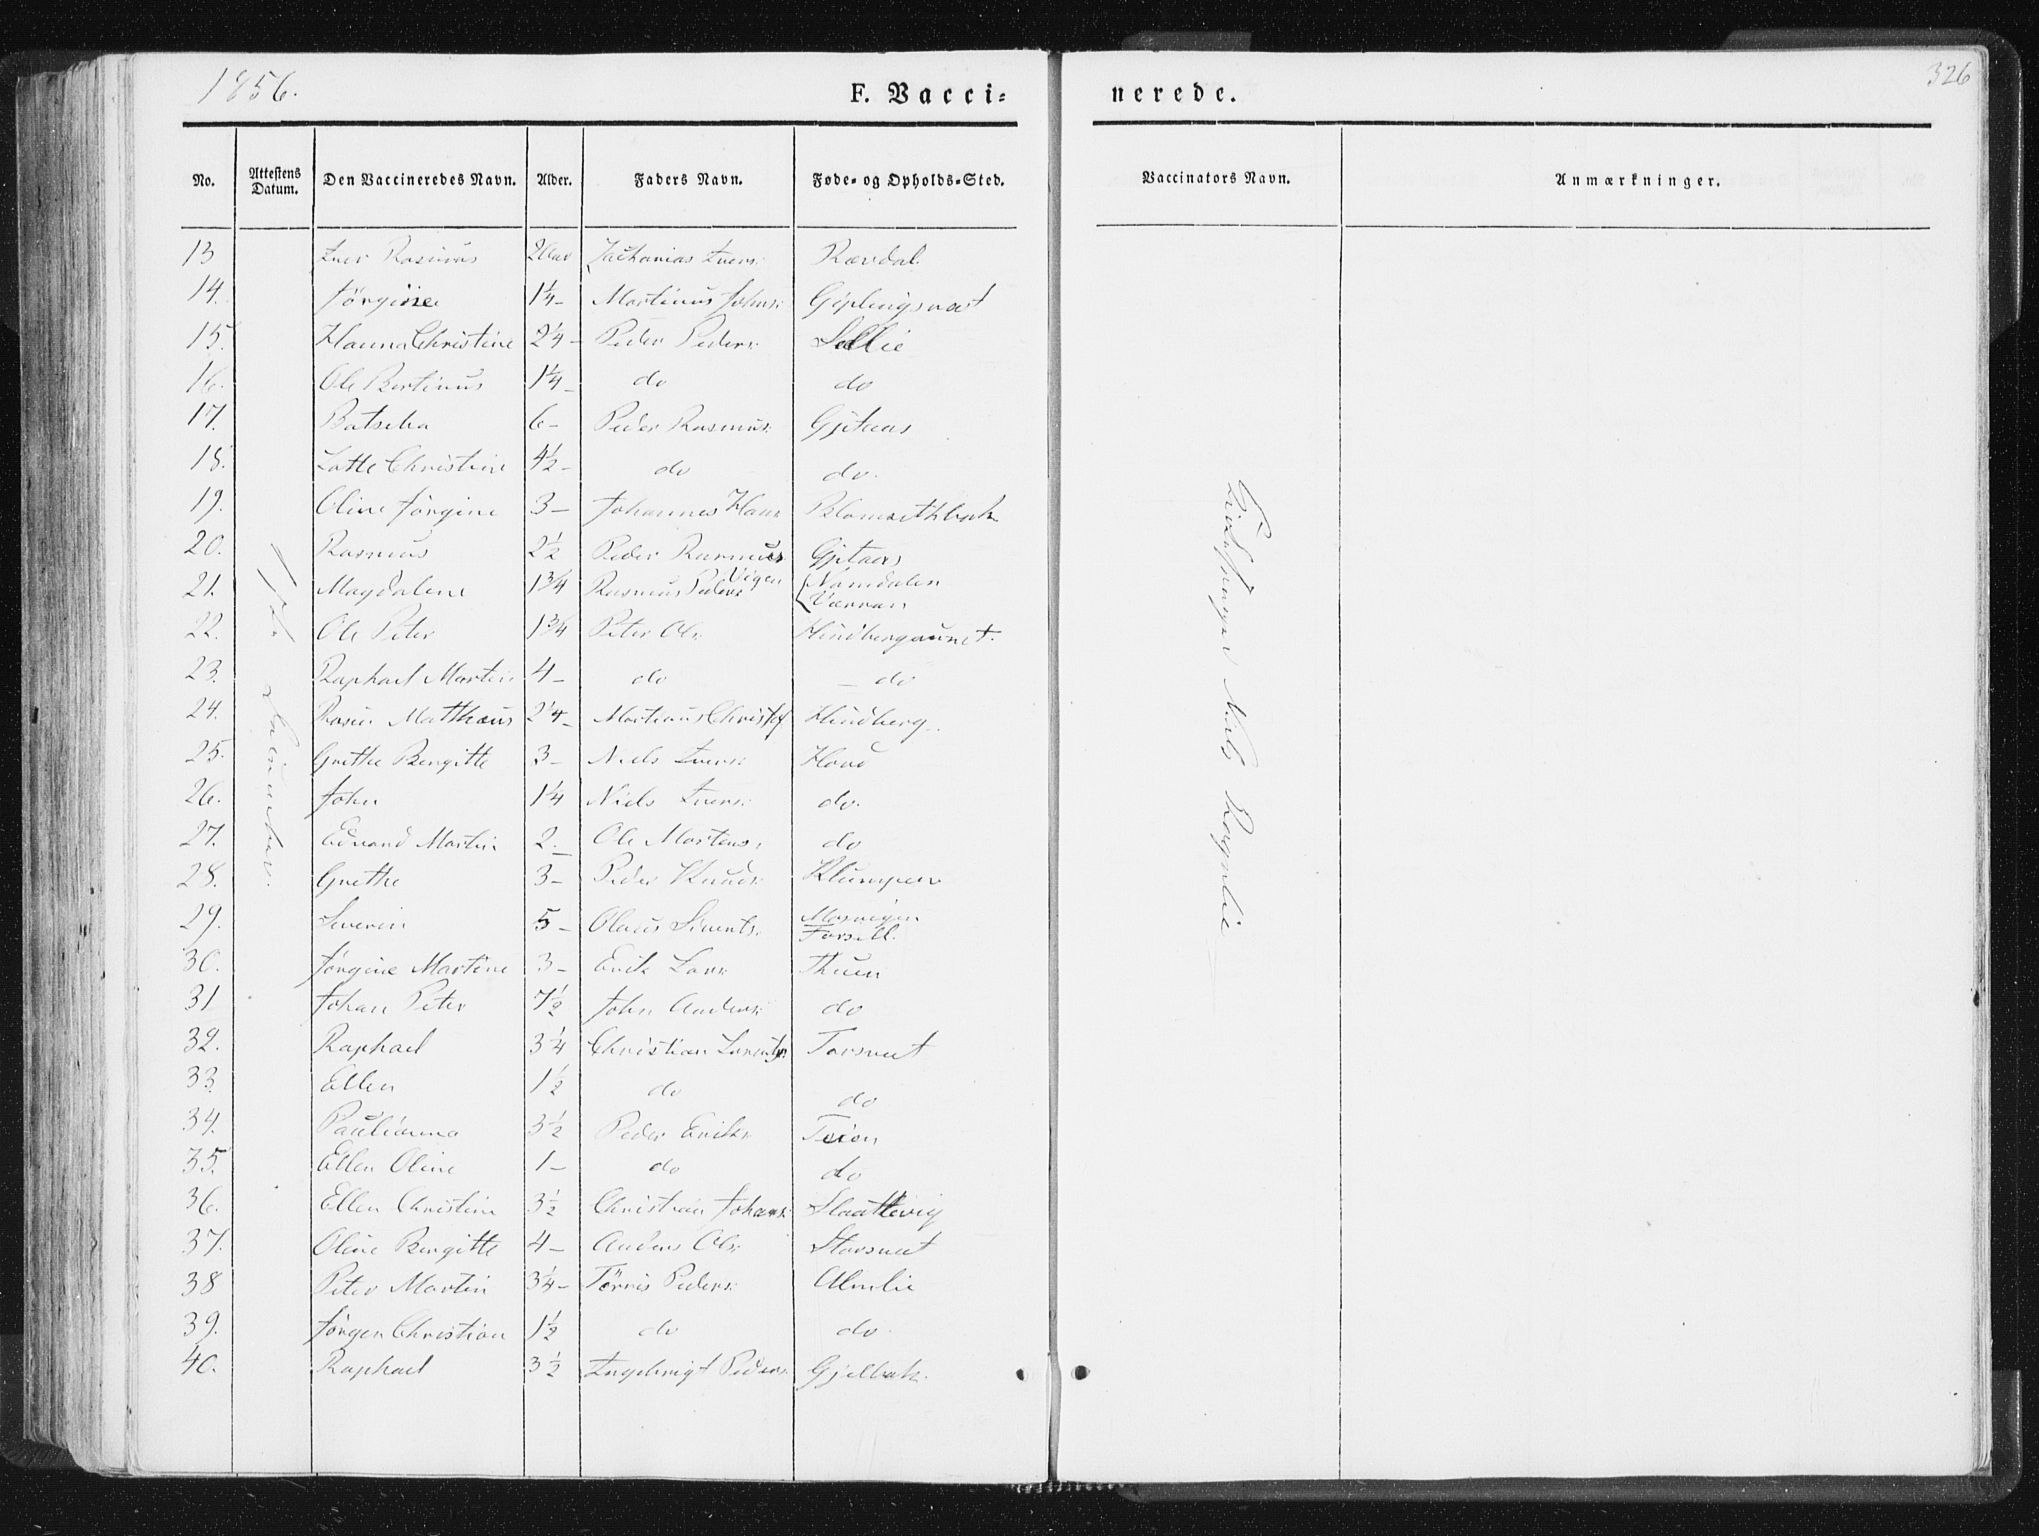 1856.
F. Vacci=
nerede.
326
No.
Attestens Datum.
Den Vaccineredes Navn.
Alder.
Faders Navn.
Føde- og Opholds-Sted.
Vaccinators Navn.
Anmærkninger.
13 Iver Rasmus Zacharias Ivers: Rævdal
14. Jørgine 1¼ – Martinus Johns:
15. Hanna Christine 2¼ – Peder Peders: Sellie
16. Ole Bertinus 1¼ – do do
17. Batseba 6 – Peder Rasmus:
18. Lotte Christine 4½ – do do.
19. Oline Jørgine 3 – Johannes Hans:
20. Rasmus 2½ Peder Rasmus
21. Magdalene 1¾ Rasmus Peders: Vigen Namdalen Værran
22. Ole Peter 1¾ Peter Ols: Hindbergaunet.
23. Raphael Martin 4 – do – do
24. Matthæus 2¼ – Martinus Christof Hindberg
25. Grethe Bergitte 3 – Niels Ivers: Hond
26. John 1¼ Niels Ivers: do.
27. Edvard Martin 2. Ole Martens: do
28. Grethe 3 – Peder Knuds: Klumpen
29. Severin 5 – Olaus Siverts: Mosvigen
30. Jørgine Martine 3 – Erik Lars: Thuen
31 Johan Peter 7½ John Anders: do
32. Raphael 3¼ Christian Lorents: Torsnæt
33. Ellen 1½ do do
34. Paulianna 3½ Peder Eriks: Teien
35. Ellen Oline 1 – do do
36. Ellen Christine 3½ Christian Johans: Slaattevig
37. Oline Bergitte 4 – Anders Ols: Storsnæt
38 Peter Martin 3¼ – Tørris Peders: Almlie
39. Jørgen Christian 1½ do do.
40. Raphael 3½ Ingebrigt Peders: Gjelbak.
Niels Rognlie